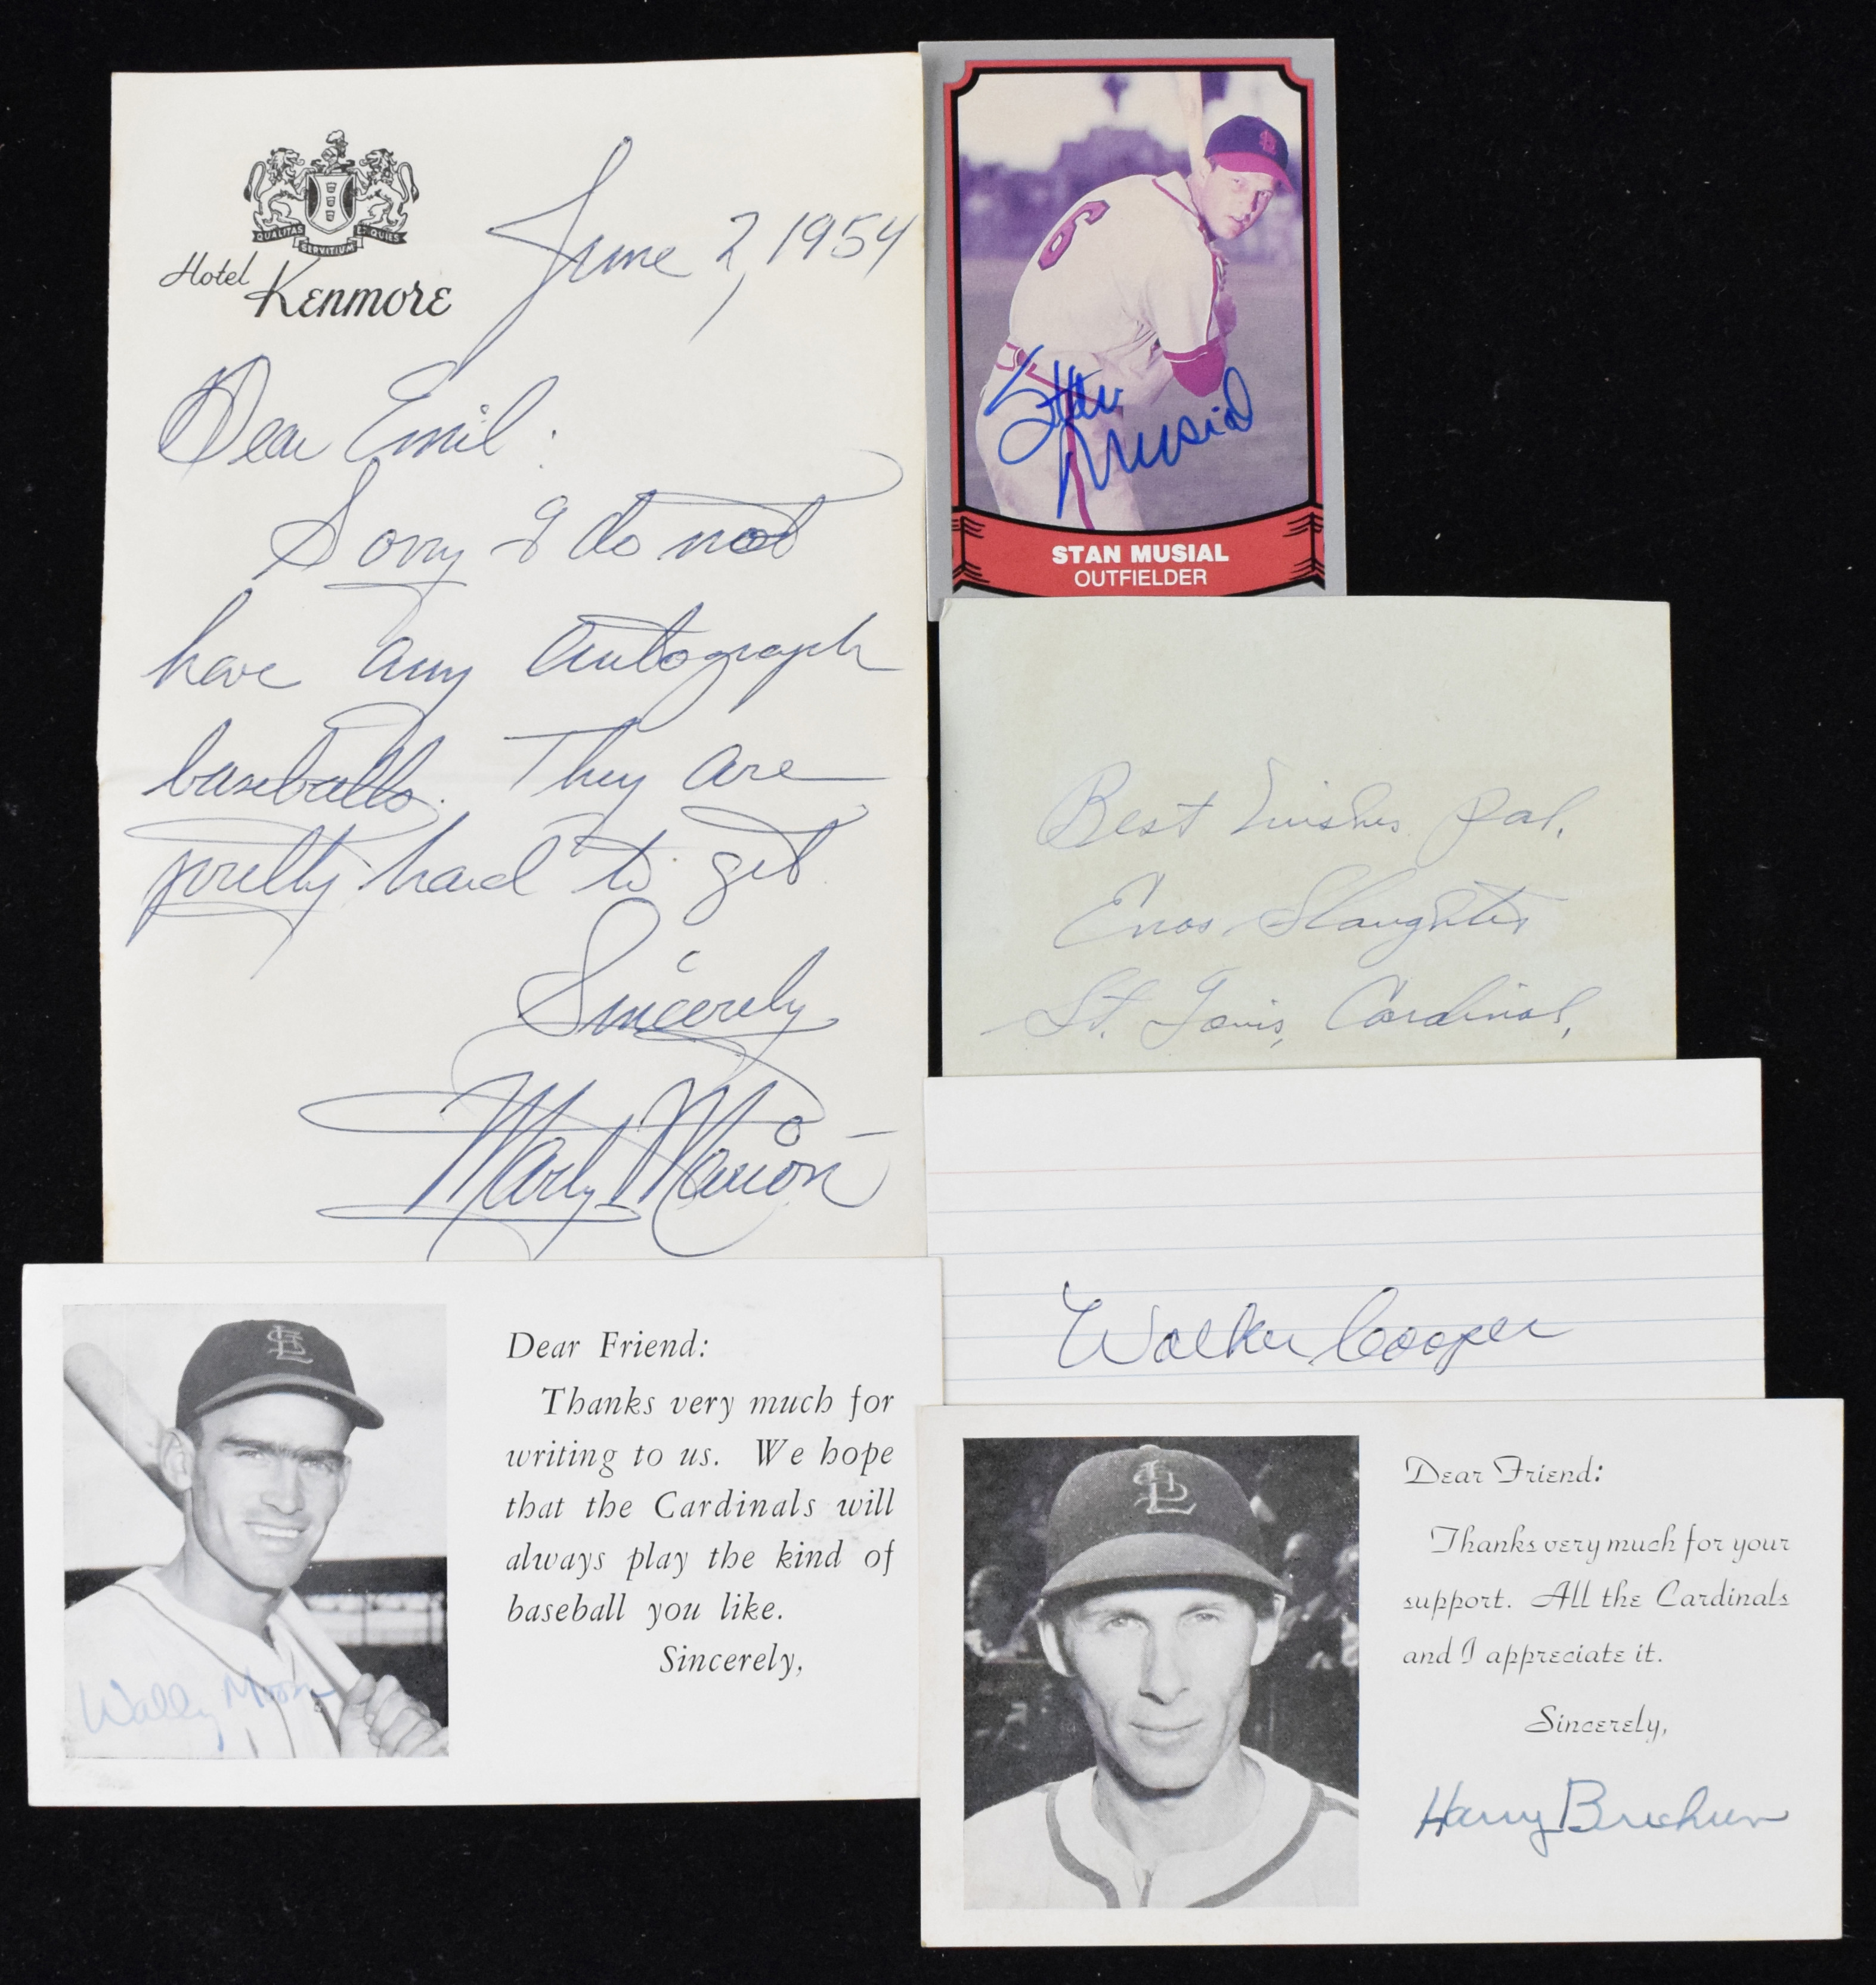 QUALITAS ET QUIES
SERVITIUM
Hotel Kenmore
June 2, 1954
Dear Emil:
Sorry I do not
have any autograph
baseballs. They are
pretty hard to get
Sincerely
Marty Marion
6
Stan
Musial
STAN MUSIAL
OUTFIELDER
Best Wishes Pal,
Enos Slaughter
St. Louis, Cardinals,
Walker Cooper
STL
Dear Friend:
Thanks very much for
writing to us. We hope
that the Cardinals will
always play the kind of
baseball you like.
Sincerely,
Wally Moon
STL
Dear Friend:
Thanks very much for your
support. All the Cardinals
and I appreciate it.
Sincerely,
Harry Brecheen